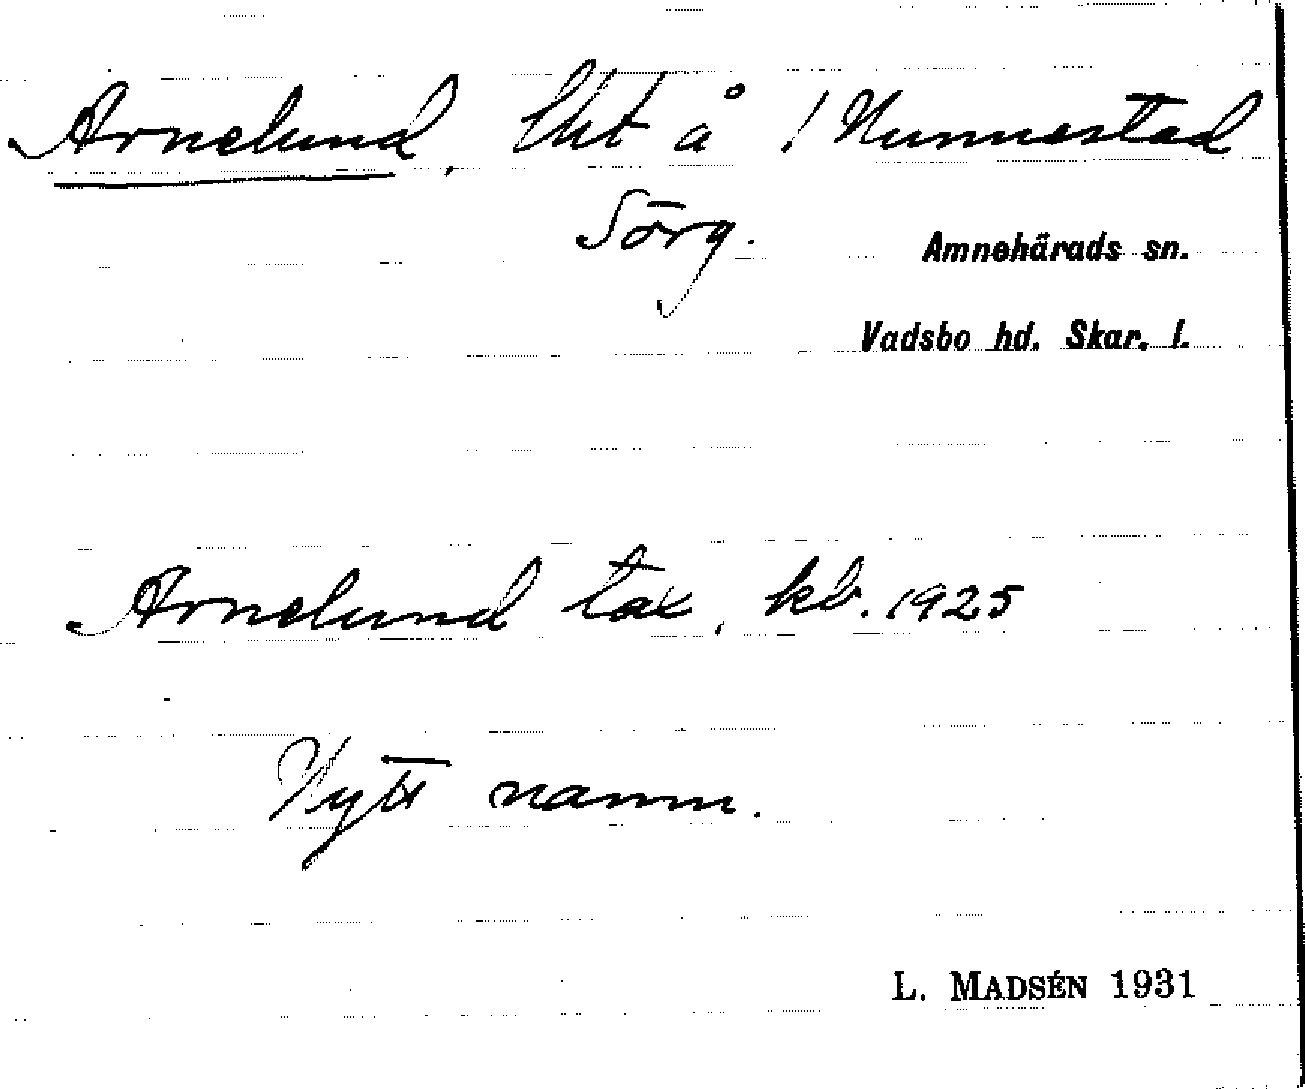 Arnelund, lht å 1 Nunnestad
Sörg.
Amnehärads sn.
Vadsbo hd. Skar. l.
Arnelund tax. kb. 1925
Nytt namn.
L. MADSÉN 1931